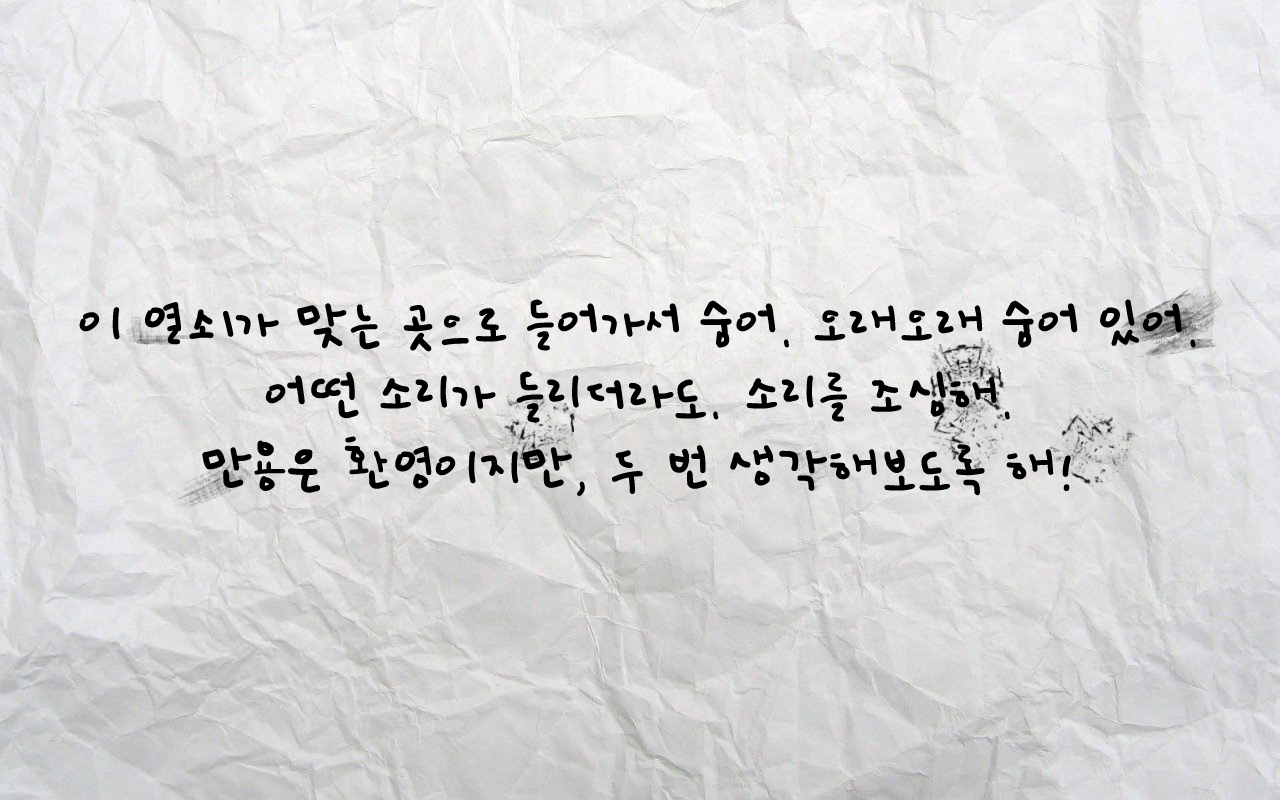 이 열쇠가 맞는 곳으로 들어가서 숨어. 오래오래 숨어 있어.
어떤 소리가 들리더라도. 소리를 조심해.
만용은 환영이지만, 두 번 생각해보도록 해!